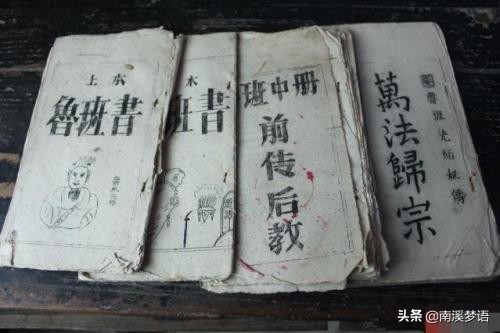 上
魯班書
班書
班中册
前传后教
魯班先师秘傳
萬法歸宗
头条 @南溪梦语